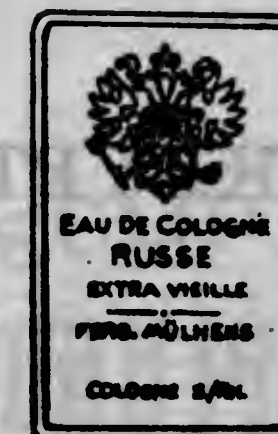 EAU DE COLOGNE
RUSSE
EXTRA VIEILLE
FERD. MÜLHENS
COLOGNE S/RH.